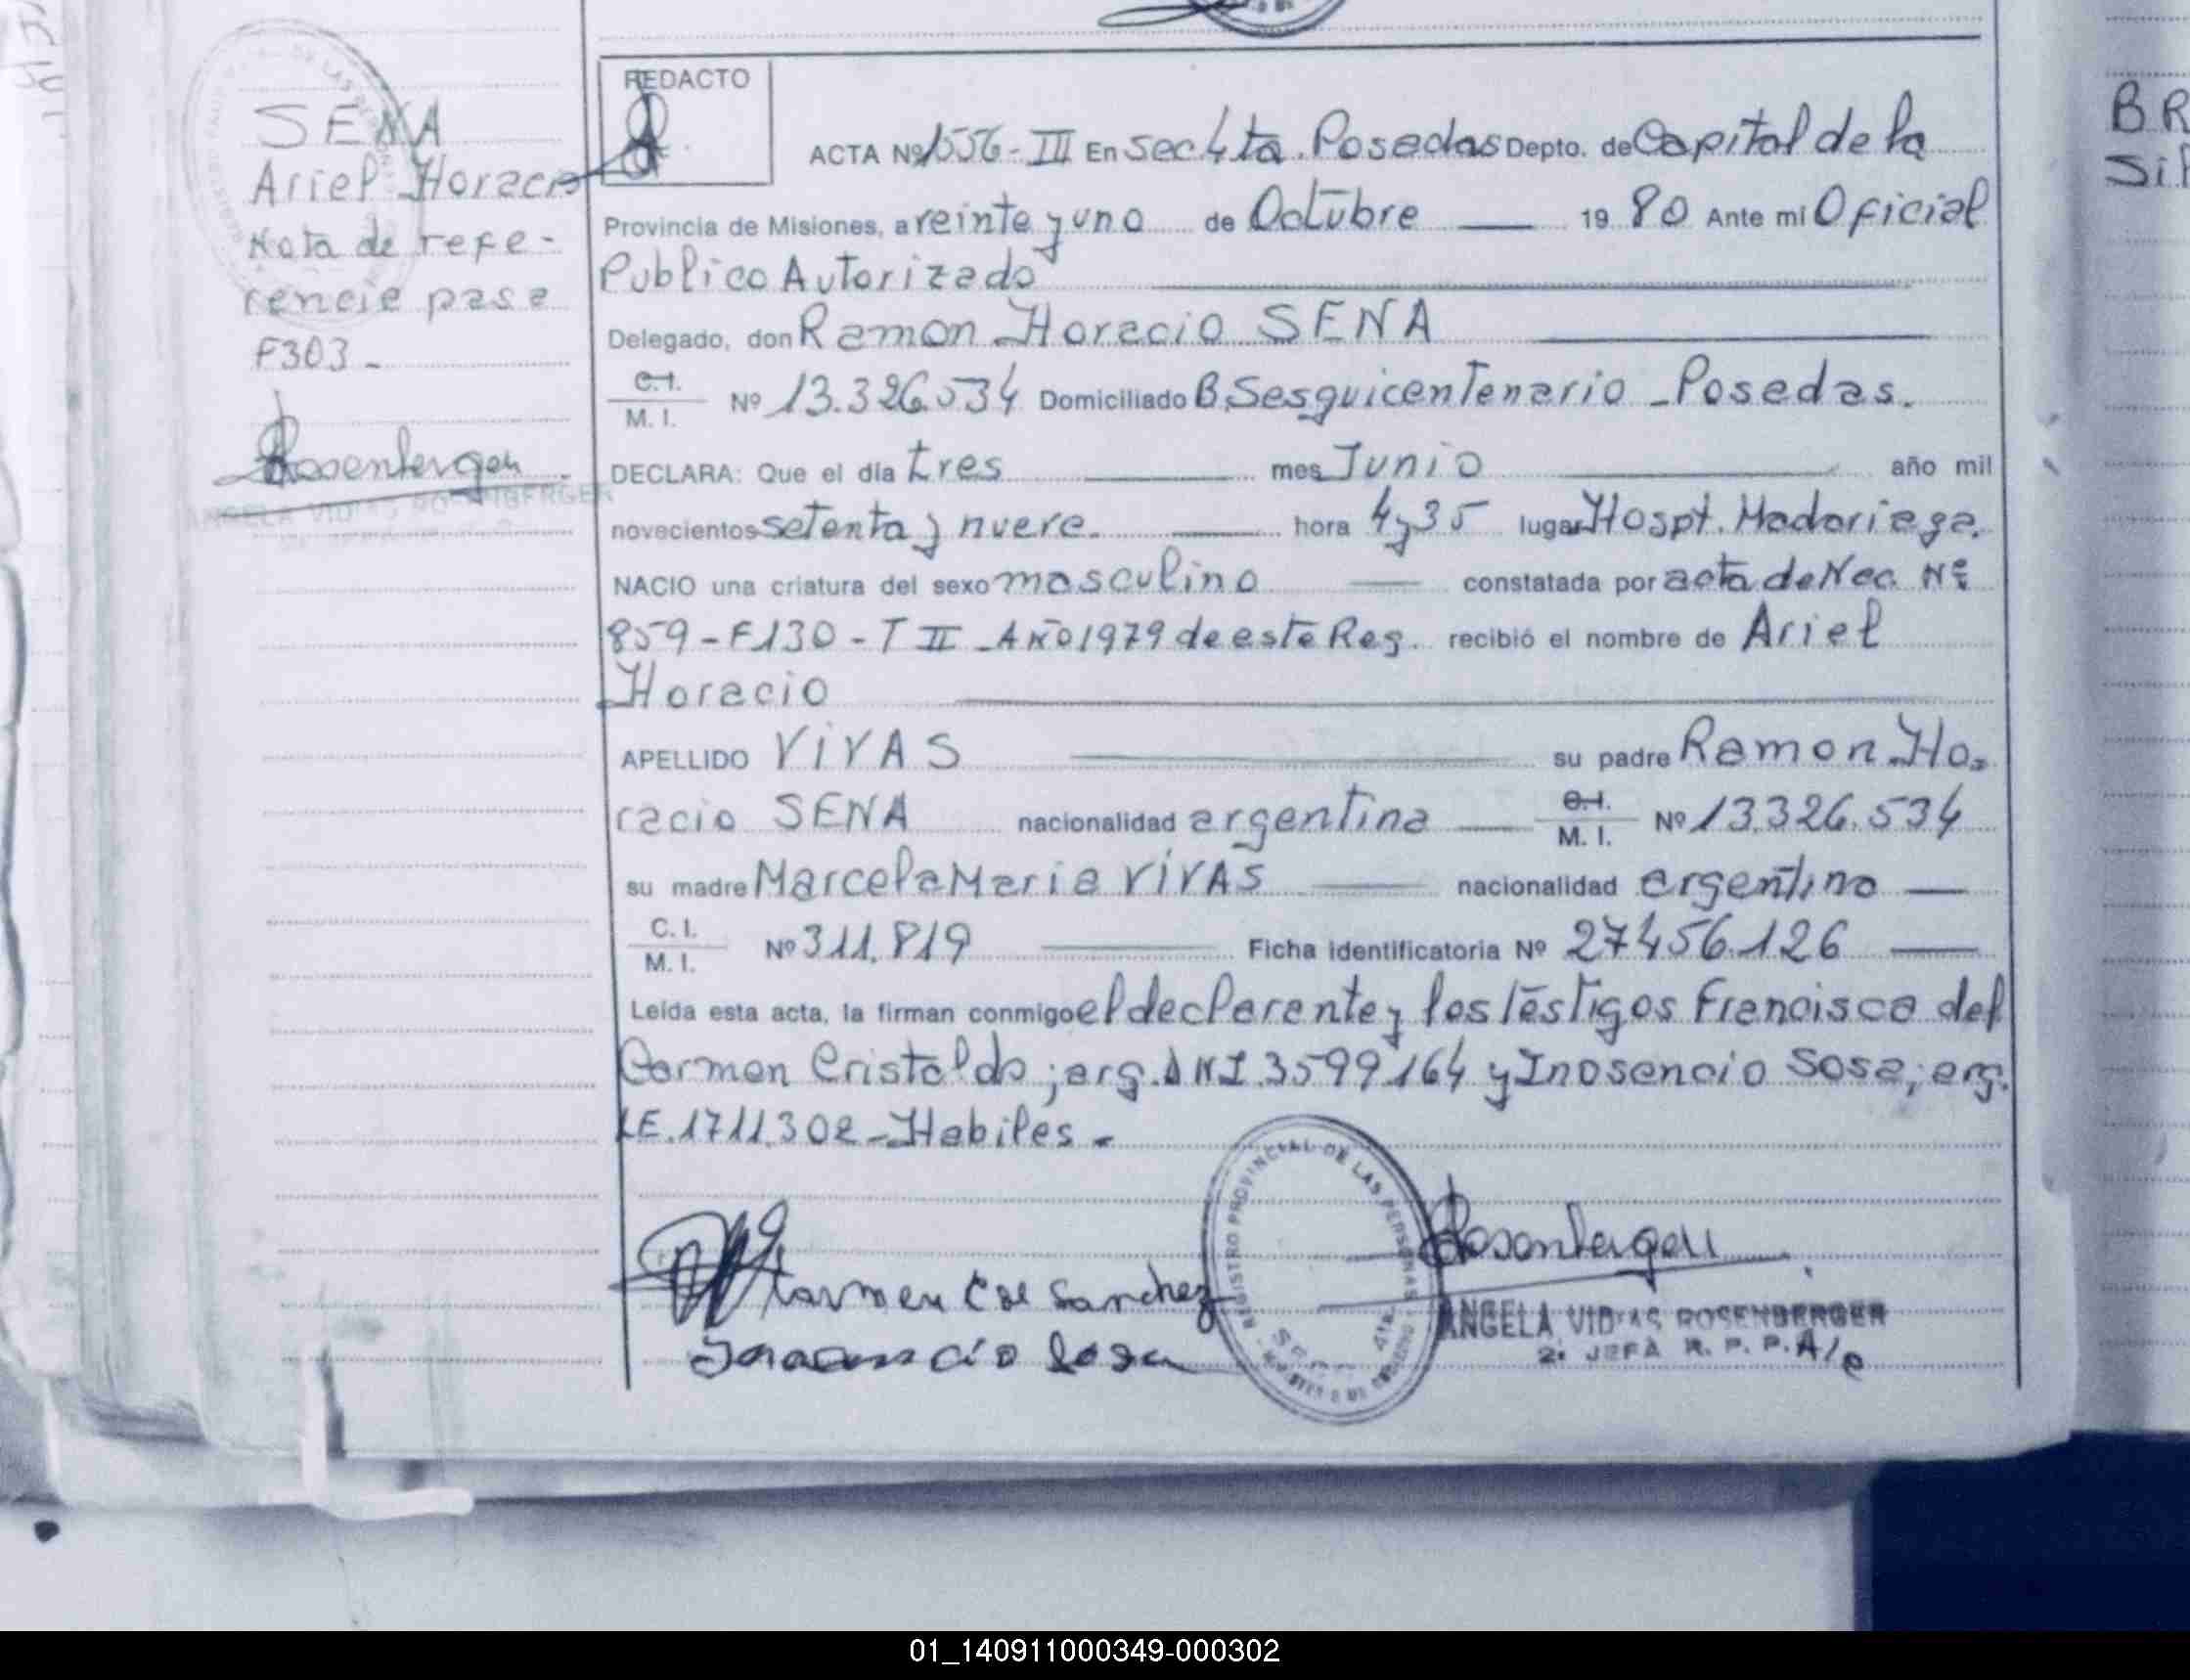 SENA
Ariel Horacio
Nota de refe-
rencie pasa
F303-
Rosenberger
ANGELA VIDIAS ROSENBERGER
REDACTO
ACTA Nº 1556-III En Sec 4ta. Posadas Depto. de Capital de la
Provincia de Misiones, a veinte y uno de Octubre 19 80 Ante mi Oficial
Publico Autorizado
Delegado, don Ramon Horacio SENA
C.I.
M. I. Nº 13.326.534 Domiciliado B. Sesquicentenario - Posadas.
DECLARA: Que el día tres mes Junio año mil
novecientos setenta y nueve. hora 4y35 lugar Hospt. Madariaga.
NACIO una criatura del sexo masculino constatada por acta de Nac. Nº
859-F130-T II-Año 1979 de este Reg. recibió el nombre de Ariel
Horacio
APELLIDO ViVAS su padre Ramon Ho-
racio SENA nacionalidad argentina C.I.
M. I. Nº 13.326.534
su madre Marcela Maria ViVAS nacionalidad argentina
C. I.
M. I. Nº 311.819 Ficha identificatoria Nº 27456.126
Leída esta acta, la firman conmigo el declarante y los testigos Francisca del
Carmen Cristaldo; arg. DNI.3599164 y Inosencio Sosa; arg.
LE.1711.302-Habiles-
Carmen C de Sanchez
Inocencio Sosa
REGISTRO PROVINCIAL DE LAS PERSONAS
Rosenberger
ANGELA VIDIAS ROSENBERGER
2ª JEFA R. P. P. A/c
BR
Sil
01_140911000349-000302